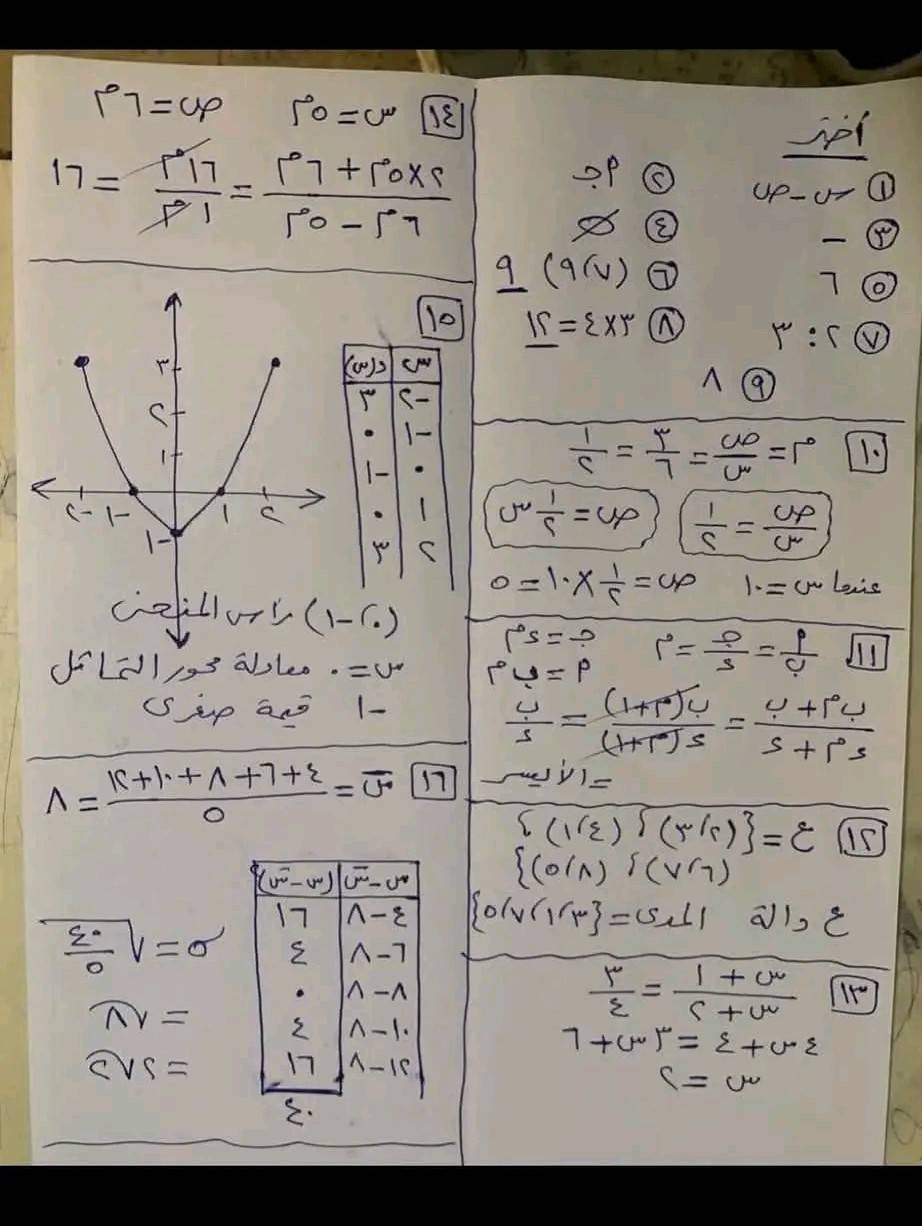 أختر
① س - ص
② أ جـ
③ -
④ ∅
⑤ ٦
⑥ (٩،٧) ٩
⑦ ٢ : ٣
⑧ ٣×٤ = ١٢
⑨ ٨
١٠ م = ص/س = ٣/٦ = ١/٢
ص/س = ١/٢
ص = ١/٢ س
عندما س = ١٠ ص = ١/٢ × ١٠ = ٥
١١ أ/ب = جـ/ء = م جـ = ء م
أ = ب م
(ب م + ب)/(ء م + ء) = ب(م+١)/ء(م+١) = ب/ء
= الأيسر
١٢ ع = {(٣،٢) ، (١،٤) ،
(٧،٦) ، (٥،٨)}
ع دالة المدى = {٥،٧،١،٣}
١٣ (س + ١)/(س + ٢) = ٣/٤
٤س + ٤ = ٣س + ٦
س = ٢
١٤ س = ٥م ص = ٦م
(٢×٥م + ٦م)/(٦م - ٥م) = ١٦م/١م = ١٦
١٥
س د(س)
-٢ ٣
-١ ٠
٠ -١
١ ٠
٢ ٣
٣
٢
١
-٢ -١ ١ ٢
-١
(٠،-١) رأس المنحنى
س = ٠ معادلة محور التماثل
-١ قيمة صغرى
١٦ س̅ = (٤+٦+٨+١٠+١٢)/٥ = ٨
س - س̅ (س - س̅)
٤-٨ ١٦
٦-٨ ٤
٨-٨ ٠
١٠-٨ ٤
١٢-٨ ١٦
٤٠
σ = √(٤٠/٥)
= √٨
= ٢√٢